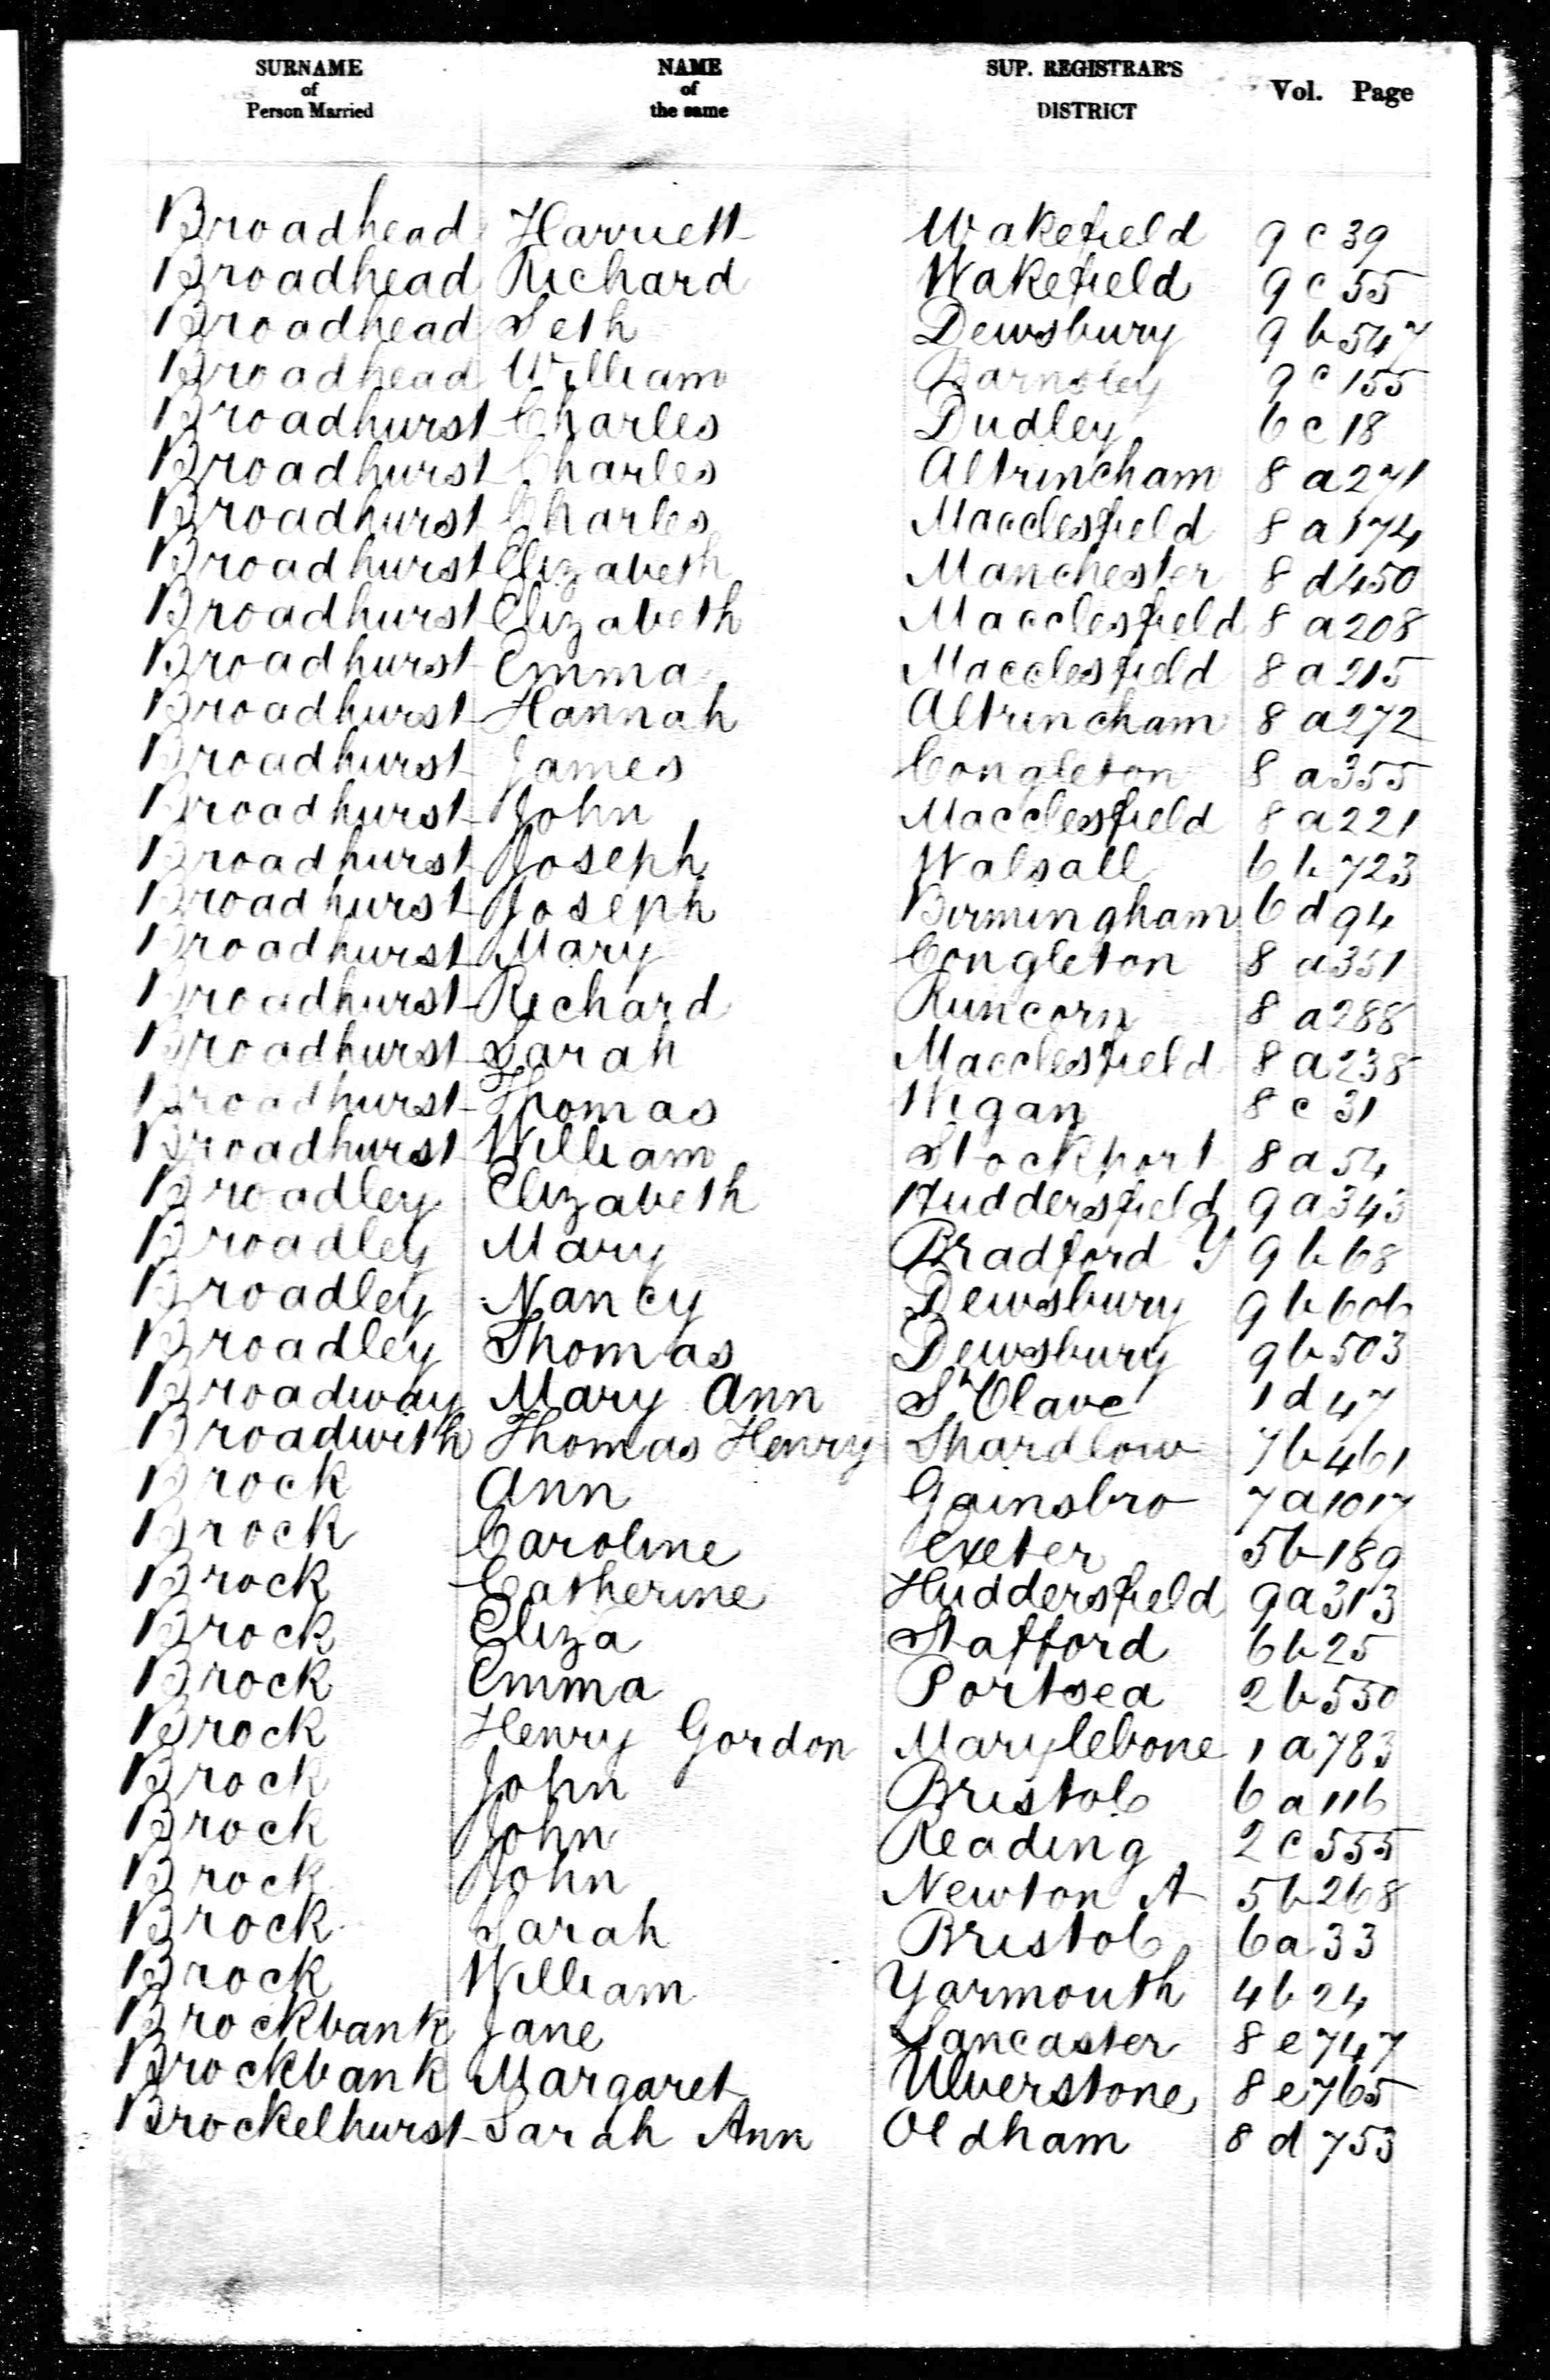 SURNAME of Person Married NAME of the same SUP. REGISTRAR'S DISTRICT Vol. Page
Broadhead Harriett Wakefield 9 c 39
Broadhead Richard Wakefield 9 c 55
Broadhead Seth Dewsbury 9 b 547
Broadhead William Barnsley 9 c 155
Broadhurst Charles Dudley 6 c 18
Broadhurst Charles Altrincham 8 a 271
Broadhurst Charles Macclesfield 8 a 174
Broadhurst Elizabeth Manchester 8 d 450
Broadhurst Elizabeth Macclesfield 8 a 208
Broadhurst Emma Macclesfield 8 a 215
Broadhurst Hannah Altrincham 8 a 272
Broadhurst James Congleton 8 a 355
Broadhurst John Macclesfield 8 a 221
Broadhurst Joseph Walsall 6 b 723
Broadhurst Joseph Birmingham 6 d 94
Broadhurst Mary Congleton 8 a 351
Broadhurst Richard Runcorn 8 a 288
Broadhurst Sarah Macclesfield 8 a 238
Broadhurst Thomas Wigan 8 c 31
Broadhurst William Stockport 8 a 54
Broadley Elizabeth Huddersfield 9 a 343
Broadley Mary Bradford Y 9 b 68
Broadley Nancy Dewsbury 9 b 606
Broadley Thomas Dewsbury 9 b 503
Broadway Mary Ann St Olave 1 d 47
Broadwith Thomas Henry Shardlow 7 b 461
Brock Ann Gainsbro 7 a 1017
Brock Caroline Exeter 5 b 189
Brock Catherine Huddersfield 9 a 313
Brock Eliza Stafford 6 b 25
Brock Emma Portsea 2 b 550
Brock Henry Gordon Marylebone 1 a 783
Brock John Bristol 6 a 116
Brock John Reading 2 c 555
Brock John Newton A 5 b 268
Brock Sarah Bristol 6 a 33
Brock William Yarmouth 4 b 24
Brockbank Jane Lancaster 8 e 747
Brockbank Margaret Ulverstone 8 e 765
Brockelhurst Sarah Ann Oldham 8 d 753